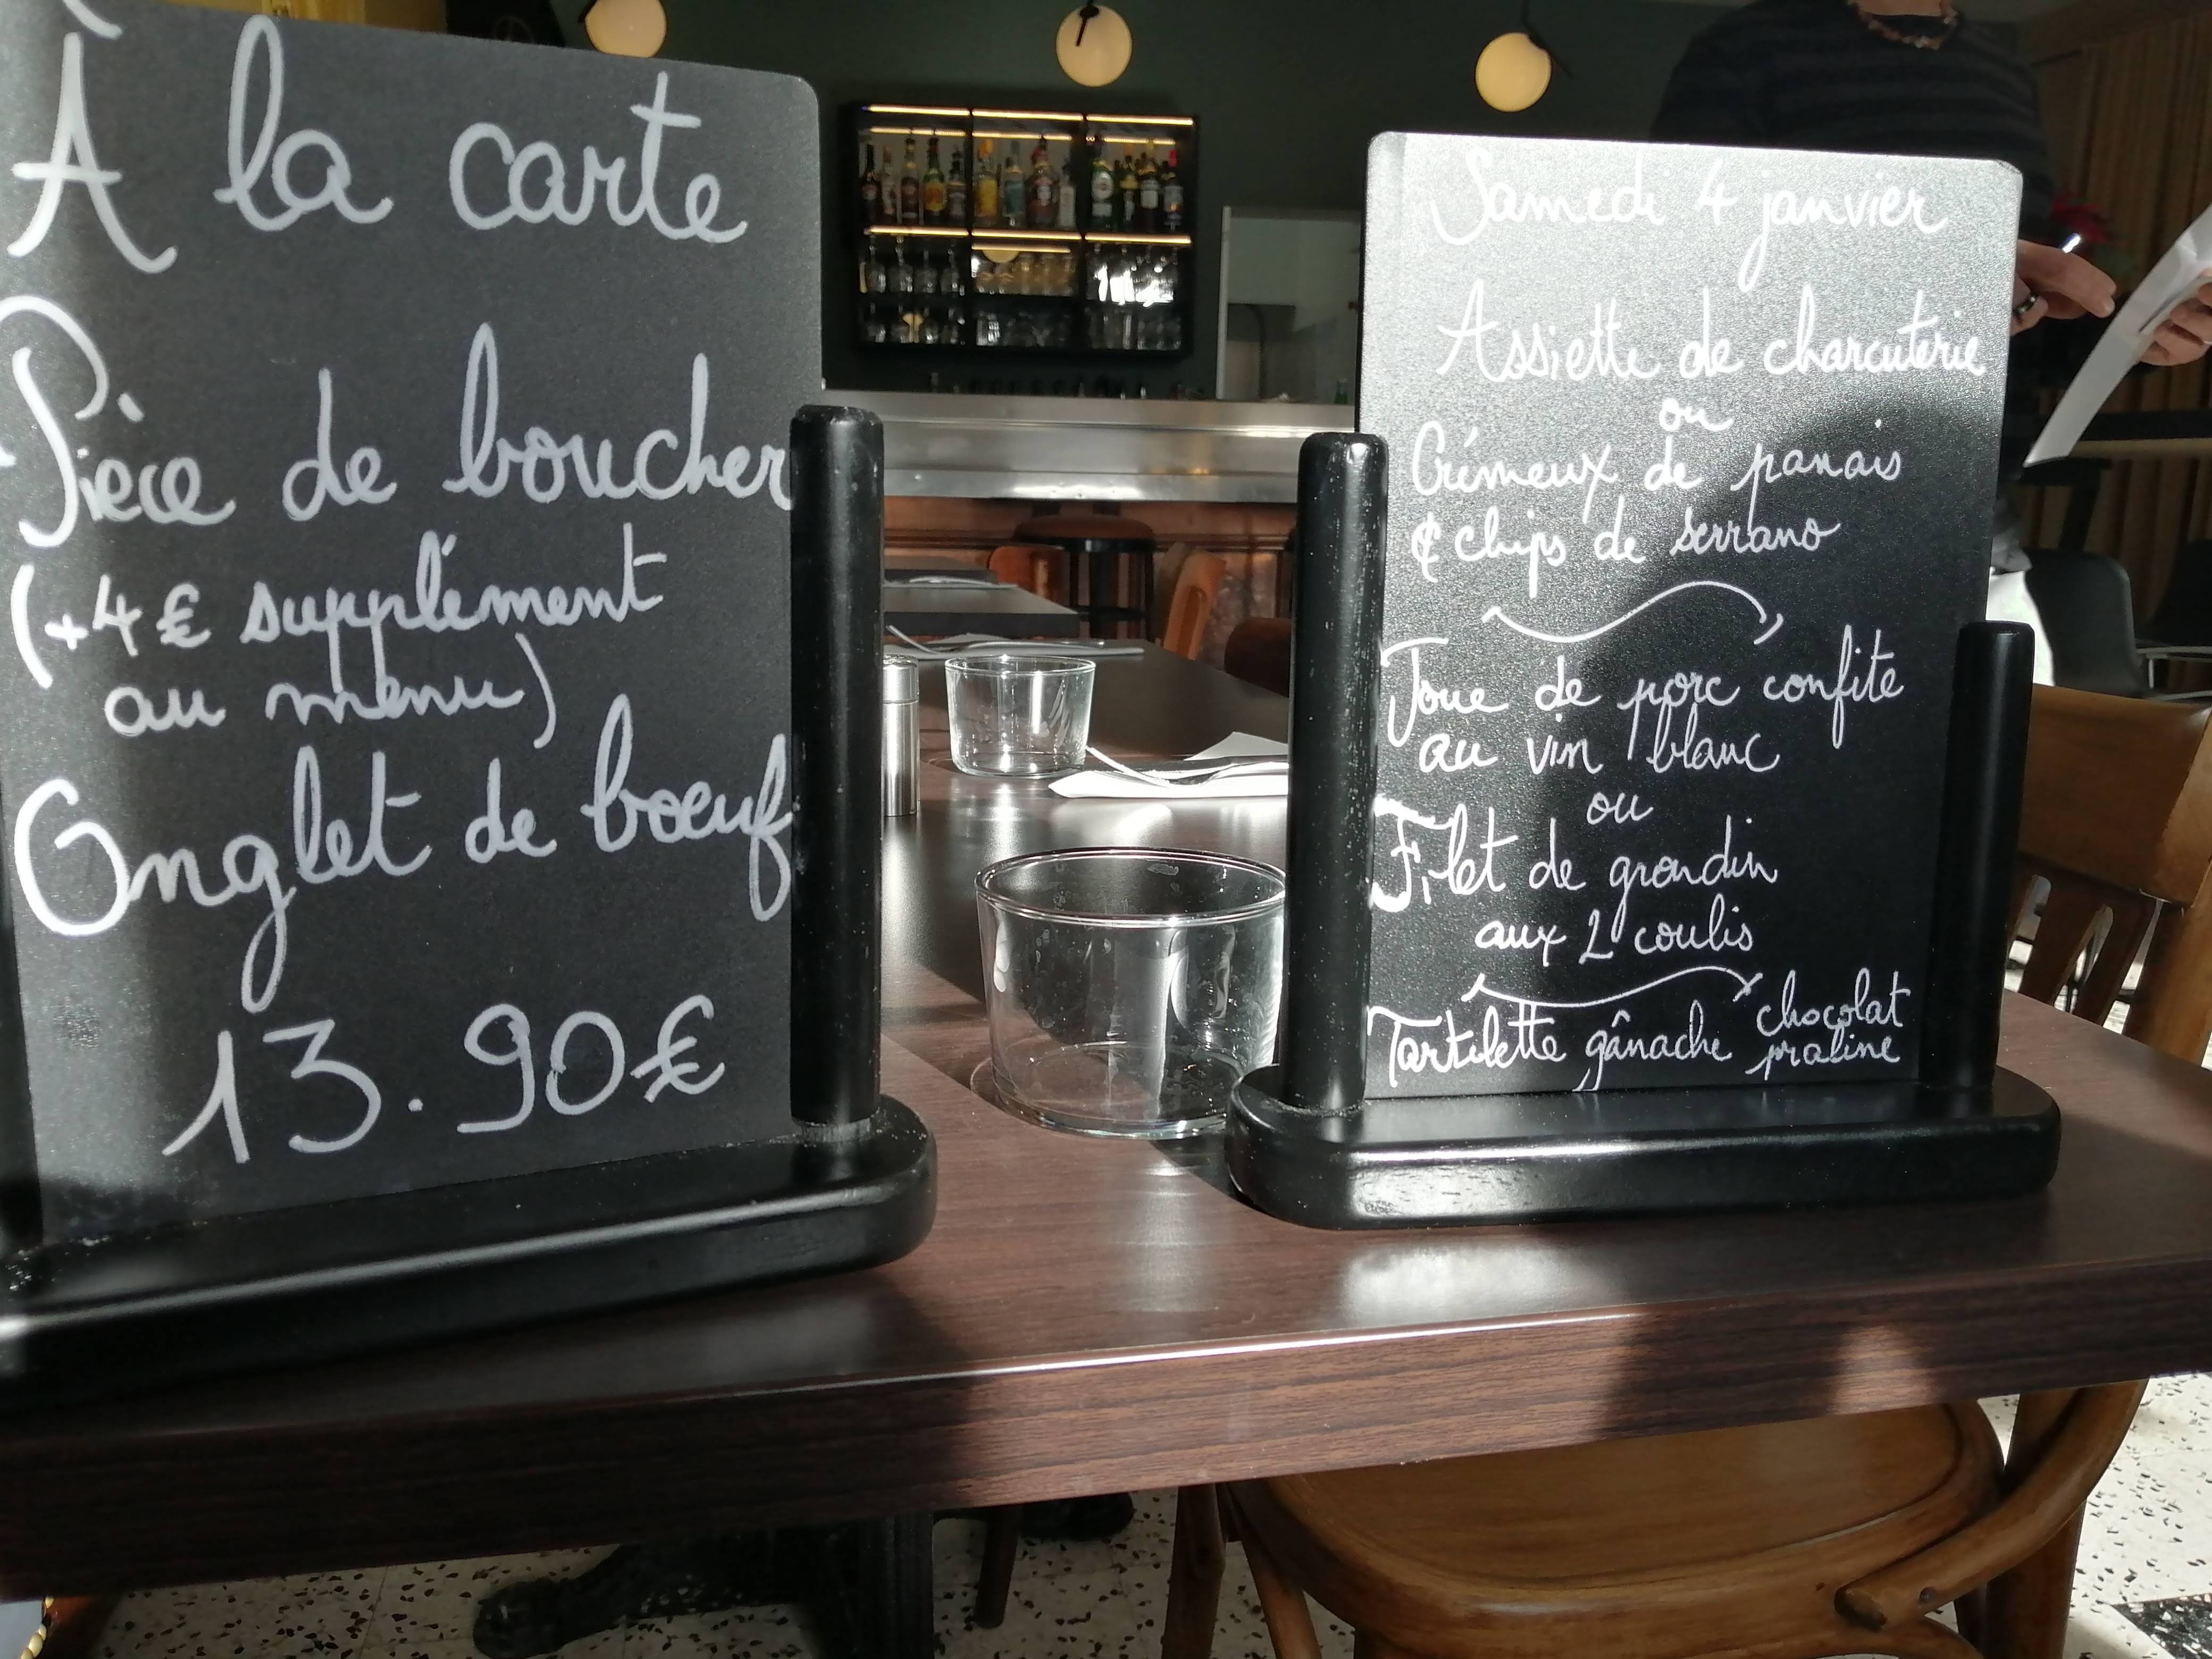 À la carte
Pièce de boucher
(+4€ supplément
au menu)
Onglet de boeuf
13.90€
Samedi 4 janvier
Assiette de charcuterie
ou
Crémeux de panais
& chips de serrano
Joue de porc confite
au vin blanc
ou
Filet de grondin
aux 2 coulis
Tartelette gânache chocolat
praliné